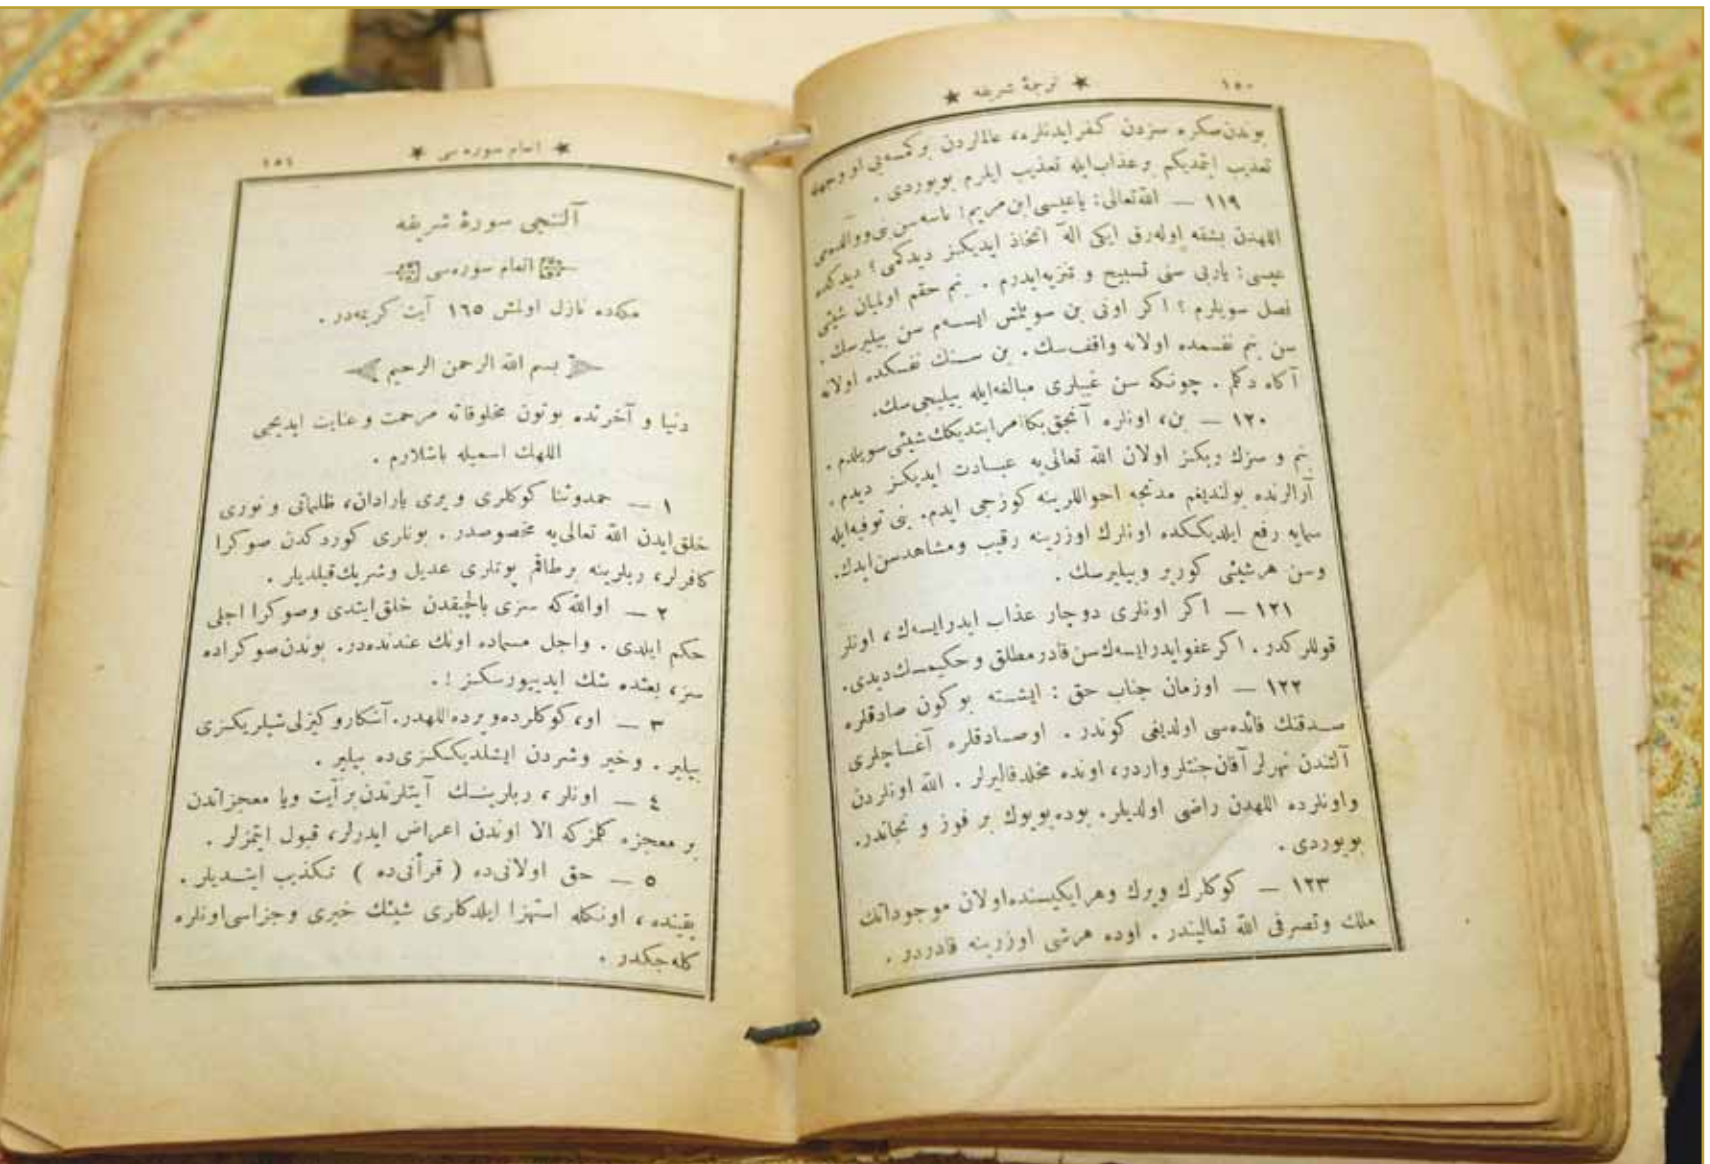 ١٥٠
★ ترجمهٔ شریفه ★
بوندن‌صکره سزدن کفرایدنلره، عالملردن برکمسه‌یی او وجهله
تعذیب ایتمدیکم برعذاب‌ایله تعذیب ایلرم بویوردی .
١١٩ — الله‌تعالی: یاعیسی ابن‌مریم! ناسه‌سن‌بنی‌ووالده‌می
اللهدن بشقه اوله‌رق ایکی اله اتخاذ ایدیکز دیدکمی؟ دیدکده
عیسی: یاربی سنی تسبیح و تنزیه‌ایدرم . بنم حقم اولمیان شیئی
نصل سویلرم ؟ اکر اونی بن سویلمش ایسه‌م سن بیلیرسك .
سن بنم نفسمده اولانه واقف‌سك . بن سنك نفسکده اولانه
آکاه دکلم . چونکه سن غیبلری مبالغه‌ایله بیلیجی‌سك.
١٢٠ — بن، اونلره آنجق‌بکاامرایتدیکك‌شیئی‌سویلدم .
بنم و سزك ربکز اولان الله تعالی‌یه عبادت ایدیکز دیدم .
آرالرنده بولندیغم مدتجه احواللرینه کوزجی ایدم. بنی توفیه‌ایله
سمایه رفع ایلدیککده اونلرك اوزرینه رقیب ومشاهدسن‌ایدك.
وسن هرشیئی کوریر وبیلیرسك .
١٢١ — اکر اونلری دوچار عذاب ایدرایسه‌ك، اونلر
قوللرکدر . اکرعفوایدرایسه‌ك‌سن‌قادرمطلق وحکیمسك‌دیدی.
١٢٢ — اوزمان جناب حق : ایشته بوکون صادقلره
صدقنك فائده‌سی اولدیغی کوندر . اوصادقلره آغاجلری
آلتندن نهرلر آقان‌جنتلرواردر، اونده مخلدقالیرلر . الله اونلردن
واونلرده اللهدن راضی اولدیلر. بوده‌بویوك بر فوز و نجاتدر.
بویوردی .
١٢٣ — کوکلرك ویرك وهرایکیسنده‌اولان موجوداتك
ملك وتصرفی الله تعالینندر . اوده هرشی اوزرینه قادردر .
★ انعام سوره‌سی ★
١٥١
آلتنجی سورهٔ شریفه
انعام سوره‌سی
مکه‌ده نازل اولمش ١٦٥ آیت کریمه‌در .
بسم الله الرحمن الرحیم
دنیا و آخرتده بوتون مخلوقاته مرحمت و عنایت ایدیجی
اللهك اسمیله باشلارم .
١ — حمدوثنا کوکلری و یری یارادان، ظلماتی و نوری
خلق‌ایدن الله تعالی‌یه مخصوصدر . بونلری کوردکدن صوکرا
کافرلر، ربلرینه برطاقم بوتلری عدیل وشریك‌قیلدیلر .
٢ — اوالله‌که سزی بالچیقدن خلق‌ایتدی وصوکرا اجلی
حکم ایلدی . واجل مسماده اونك عندنده‌در. بوندن‌صوکراده
سز، بعثده شك ایدییورسکز ! .
٣ — او، کوکلرده‌ویرده‌اللهدر. آشکاروکیزلی‌شیلریکزی
بیلیر . وخیر وشردن ایشلدیککزی‌ده بیلیر .
٤ — اونلر ، ربلرینك آیتلرندن‌برآیت ویا معجزاتدن
بر معجزه کلمزکه الا اوندن اعراض ایدرلر، قبول ایتمزلر .
٥ — حق اولانی‌ده ( قرآنی‌ده ) تکذیب ایتدیلر .
یقینده ، اونکله استهزا ایلدکاری شیئك خبری وجزاسی‌اونلره
کله‌جکدر .